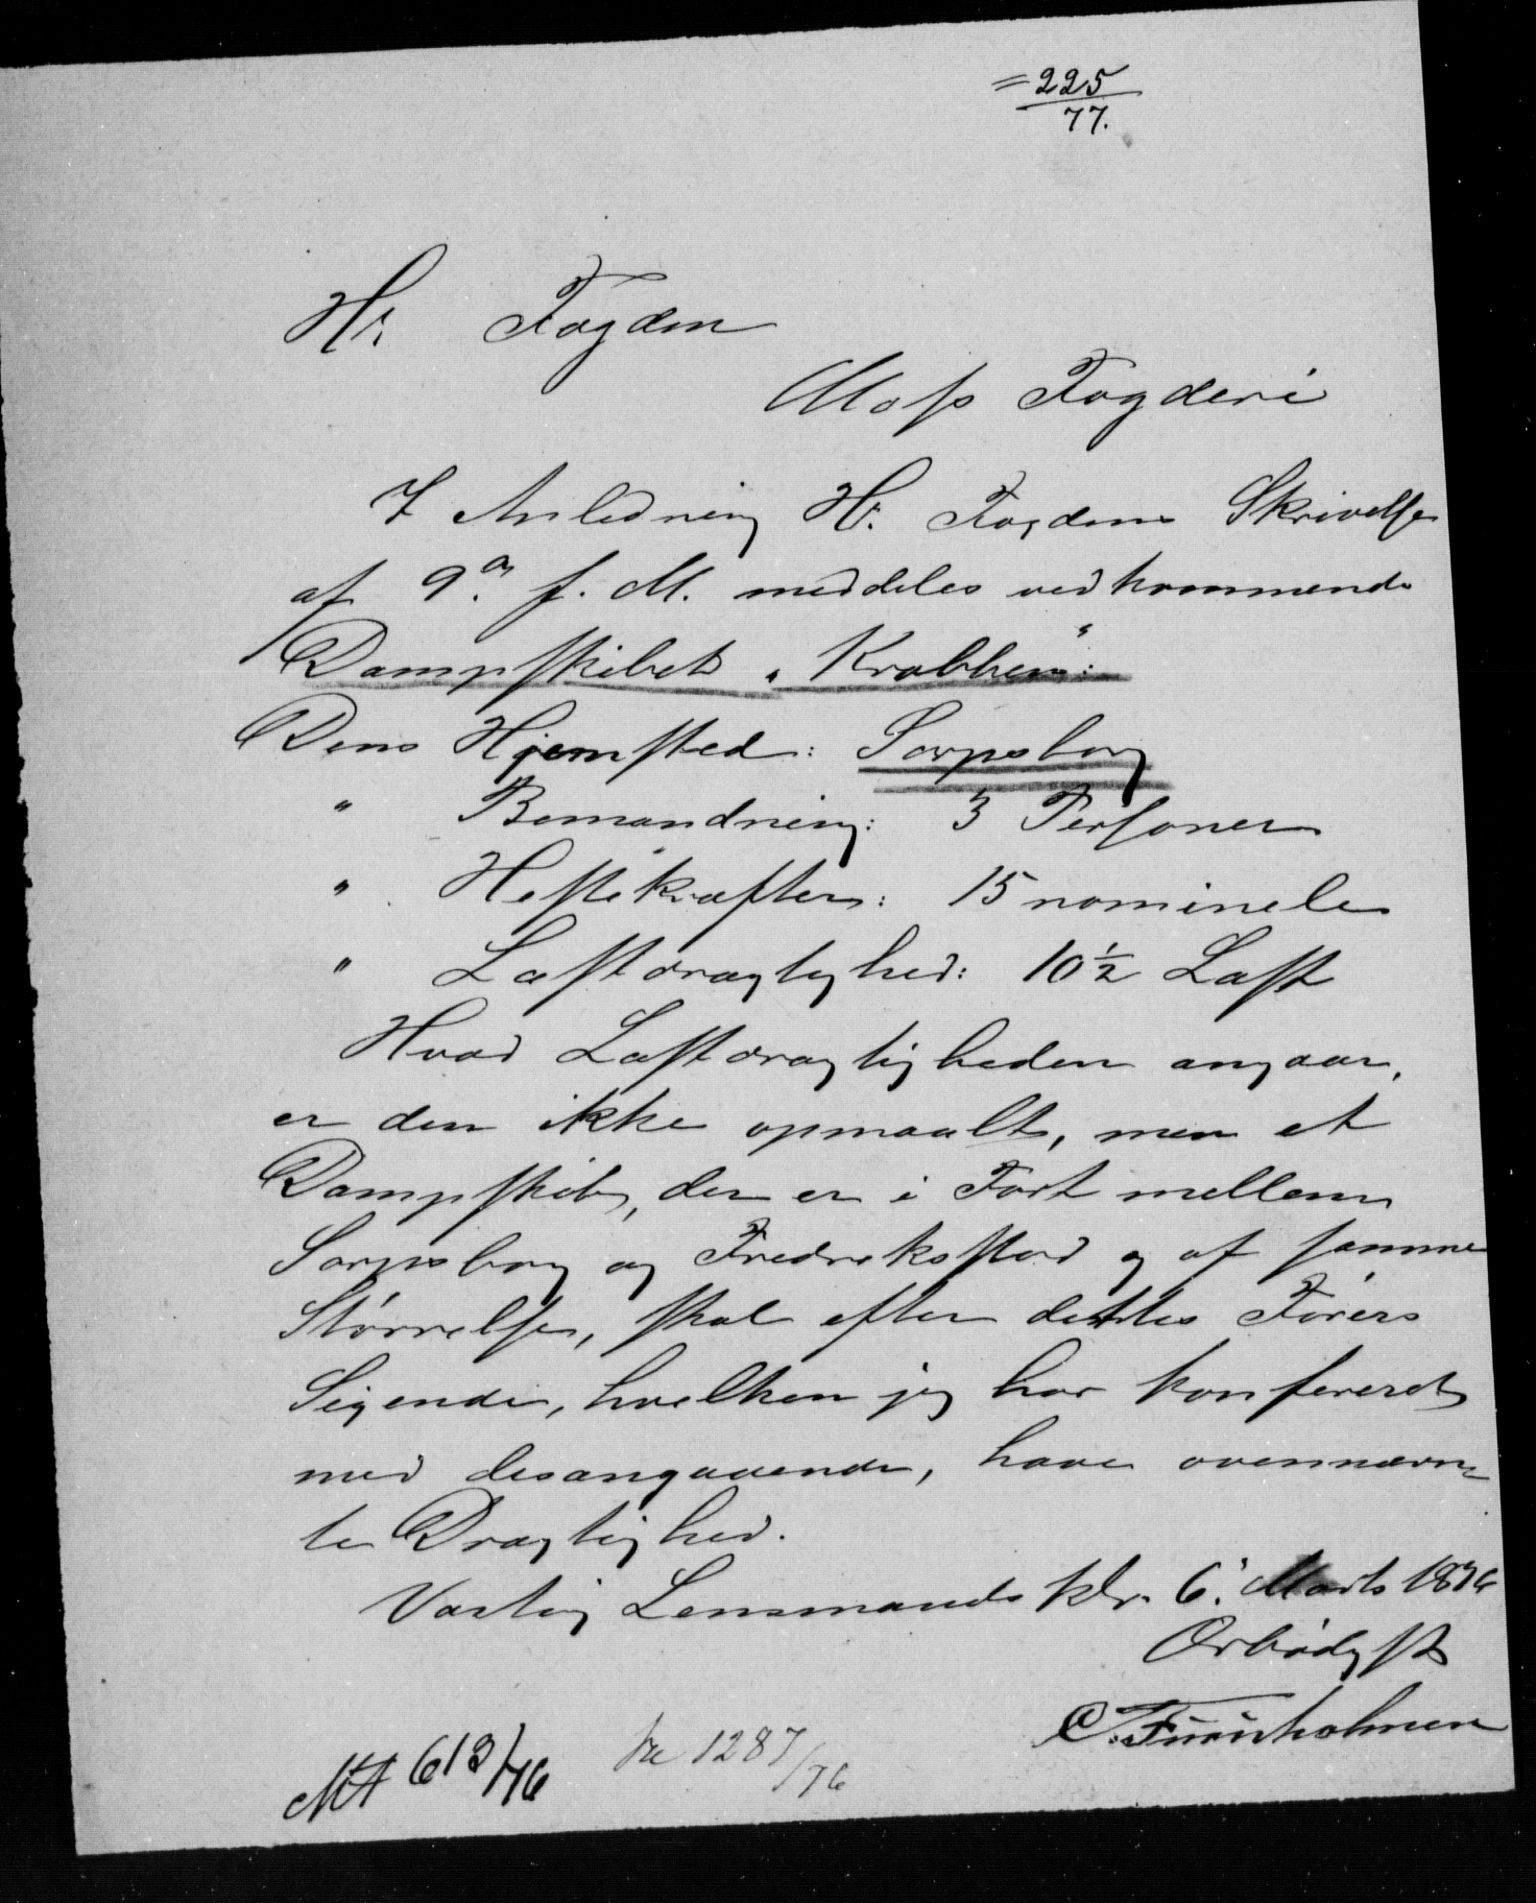 =225
77.
Hr. Fogden
Moss Fogderi
I Anledning Hr. Fogdens Skrivelse
af 9. f. M. meddeles vedkommende
Dampskibet "Krabben":
Dens Hjemsted: Sarpsborg
" Bemandning: 3 Personer
" Hestekræfter: 15 nominele
" Læstdrægtyghed: 10½ Læst
Hvad Læstdrægtigheden angaar,
er den ikke opmaalt, men et
Dampskib, der er i Fart mellem
Sarpsborg og Fredrekstad og af samme
Størrelse, skal efter dettes Førers
Sigende, hvelken jeg har konfereret
med desangaaende, have ovennævn-
te Drægtighed.
Lensmandsktr. 6. Marts 1876
Ærbødigst
C. Furuholmen
613/76
1287/76